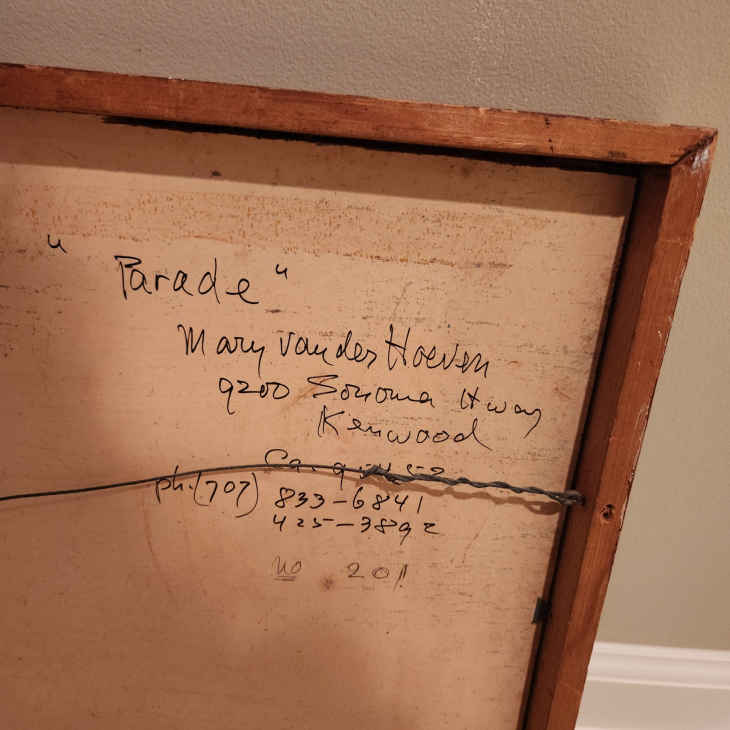 " Parade "
Mary van der Hoeven
9200 Sonoma Hway
Kenwood
Ca.
ph. (707) 833-6841
425-3892
no 201